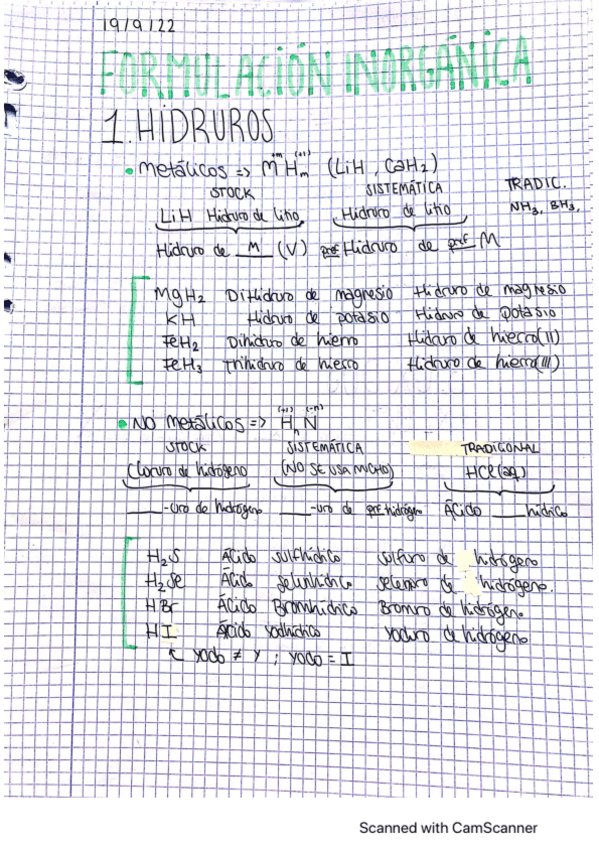 19/9/22
FORMULACIÓN INORGÁNICA
1. HIDRUROS
• Metálicos => M⁺ᵐ Hₘ⁽⁺¹⁾ (LiH, CaH₂)
STOCK SISTEMÁTICA TRADIC.
LiH Hidruro de litio Hidruro de litio NH₃, BH₃,
Hidruro de M (V) pref Hidruro de pref M
MgH₂ DiHidruro de magnesio Hidruro de magnesio
KH Hidruro de potasio Hidruro de potasio
FeH₂ Dihidruro de hierro Hidruro de hierro (II)
FeH₃ Trihidruro de hierro Hidruro de hierro (III)
• NO Metálicos => Hₙ⁽⁺¹⁾ N⁽⁻ⁿ⁾
STOCK SISTEMÁTICA TRADICIONAL
Cloruro de hidrógeno (NO SE USA MUCHO) HCl (aq)
____-uro de hidrógeno ____-uro de pref hidrógeno Ácido ____ hídrico
H₂S Ácido sulfhídrico sulfuro de hidrógeno
H₂Se Ácido selenhídrico seleniuro de hidrógeno.
HBr Ácido Bromhídrico Bromuro de hidrógeno
HI Ácido yodhídrico yoduro de hidrógeno
yodo ≠ Y ; yodo = I
Scanned with CamScanner